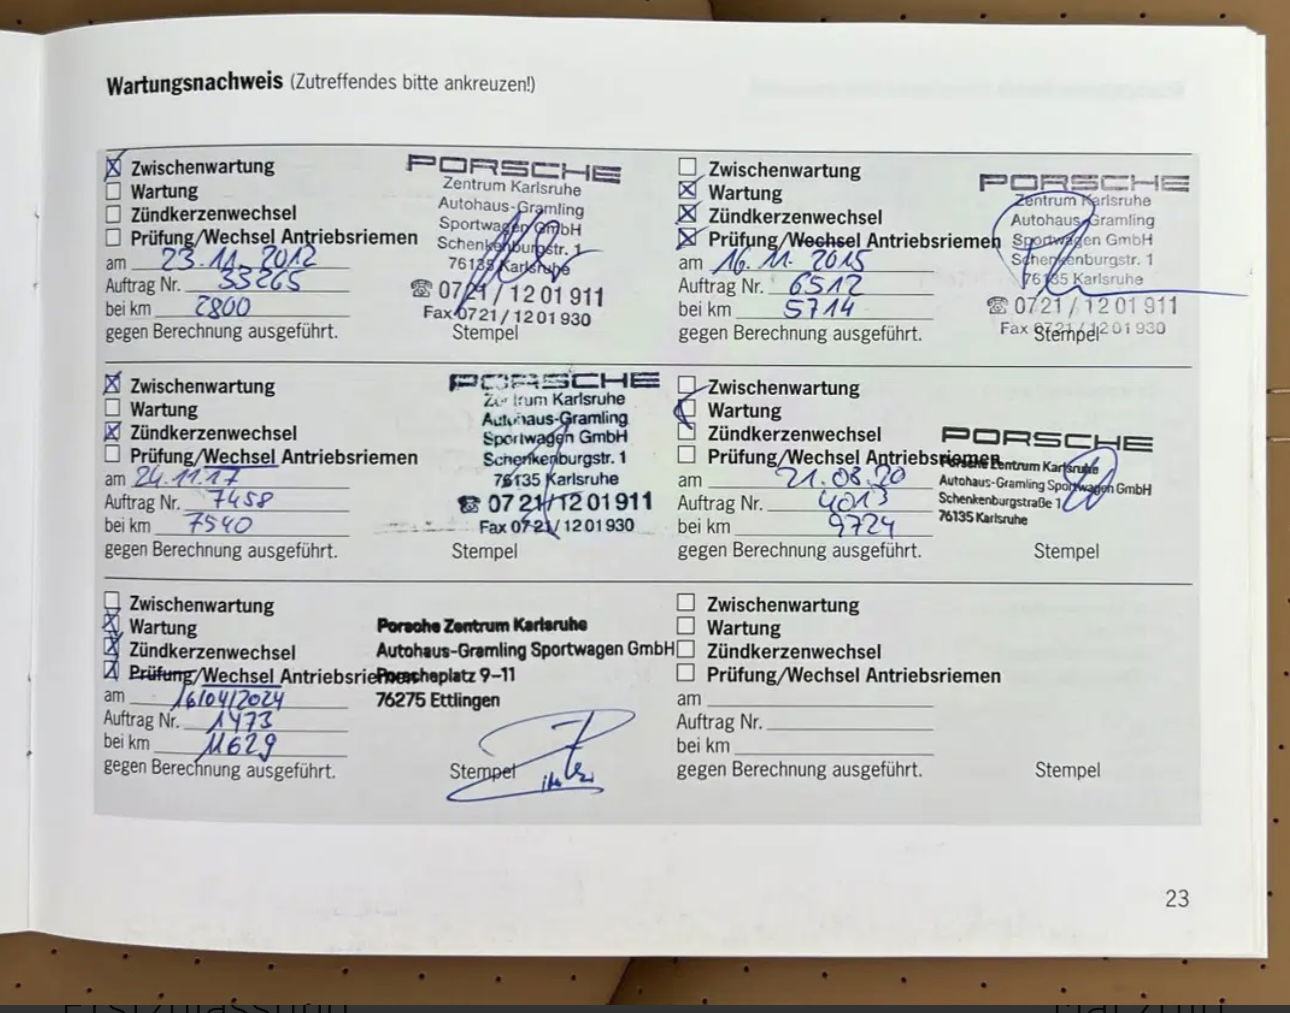 Wartungsnachweis (Zutreffendes bitte ankreuzen!)
Zwischenwartung
Wartung
Zündkerzenwechsel
Prüfung/Wechsel Antriebsriemen
am 23.11.2012
Auftrag Nr. 33265
bei km 2800
gegen Berechnung ausgeführt.
PORSCHE
Zentrum Karlsruhe
Autohaus-Gramling
Sportwagen GmbH
Schenkenburgstr. 1
76135 Karlsruhe
☎ 0721 / 12 01 911
Fax 0721 / 12 01 930
Stempel
Zwischenwartung
Wartung
Zündkerzenwechsel
Prüfung/Wechsel Antriebsriemen
am 16.11.2015
Auftrag Nr. 6512
bei km 5714
gegen Berechnung ausgeführt.
PORSCHE
Zentrum Karlsruhe
Autohaus-Gramling
Sportwagen GmbH
Schenkenburgstr. 1
76135 Karlsruhe
☎ 0721 / 12 01 911
Fax 0721 / 12 01 930
Stempel
Zwischenwartung
Wartung
Zündkerzenwechsel
Prüfung/Wechsel Antriebsriemen
am 24.11.17
Auftrag Nr. 7458
bei km 7540
gegen Berechnung ausgeführt.
PORSCHE
Zentrum Karlsruhe
Autohaus-Gramling
Sportwagen GmbH
Schenkenburgstr. 1
76135 Karlsruhe
☎ 0721/1201911
Fax 0721 / 12 01 930
Stempel
Zwischenwartung
Wartung
Zündkerzenwechsel
Prüfung/Wechsel Antriebsriemen
am 21.08.20
Auftrag Nr. 4013
bei km 9724
gegen Berechnung ausgeführt.
PORSCHE
Porsche Zentrum Karlsruhe
Autohaus-Gramling Sportwagen GmbH
Schenkenburgstraße 1
76135 Karlsruhe
Stempel
Zwischenwartung
Wartung
Zündkerzenwechsel
Prüfung/Wechsel Antriebsriemen
am 16/04/2024
Auftrag Nr. 1473
bei km 11629
gegen Berechnung ausgeführt.
Porsche Zentrum Karlsruhe
Autohaus-Gramling Sportwagen GmbH
Porscheplatz 9–11
76275 Ettlingen
Stempel
Zwischenwartung
Wartung
Zündkerzenwechsel
Prüfung/Wechsel Antriebsriemen
am
Auftrag Nr.
bei km
gegen Berechnung ausgeführt.
Stempel
23